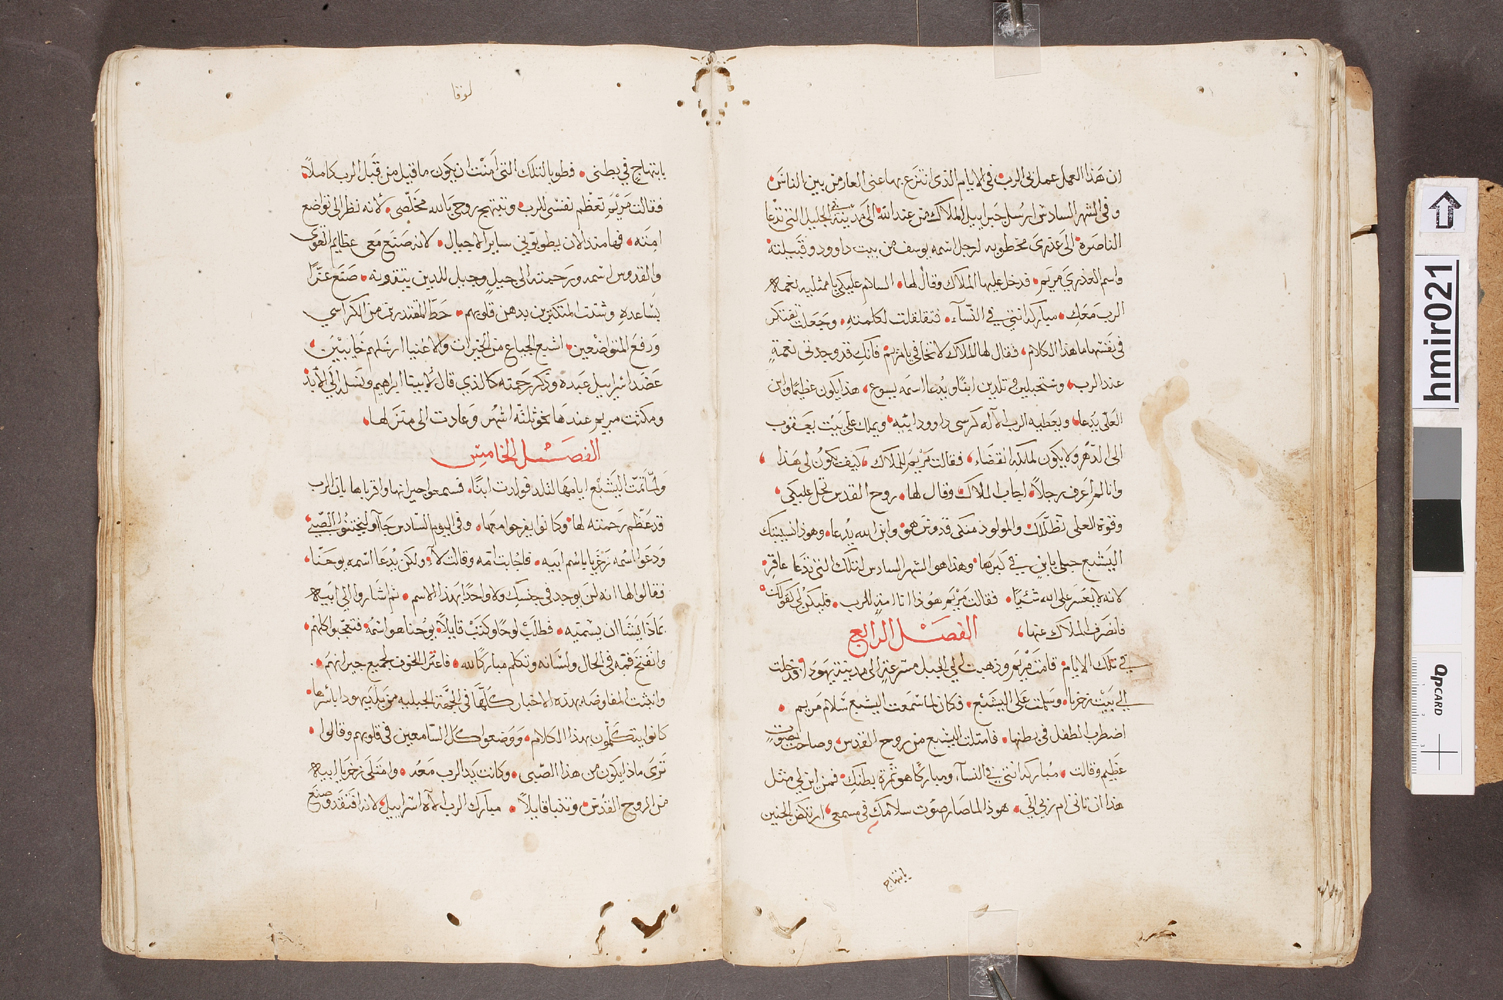 ان هذا العمل عمل بي الرب في الايام الذي انتزع بها عني العار من بين الناس
وفي الشهر السادس ارسل جبراييل الملاك من عند الله الى مدينة في الجليل التي تدعا
الناصرة الى عذرى مخطوبه لرجل اسمه يوسف من بيت داوود وقبيلته
واسم العذري مريم فدخل عليها الملاك وقال لها السلام عليكي يا ممتليه نعمه
الرب معك مباركه انتي في النسآء فتقلقلت لكلمته وجعلت تفتكر
في نفسها ما هذا الكلام فقال لها الملاك لا تخافي يا مريم فانك قد وجدتي نعمة
عند الرب وستحبلين وتلدين ابنًا ويدعا اسمه يسوع هذا يكون عظيمًا وابن
العلي يدعا ويعطيه الرب الاله كرسي داوود ابيه ويملك على بيت يعقوب
الى الدهر ولا يكون لملكه انقضاء فقالت مريم للملاك كيف يكون لي هذا
وانا لم اعرف رجلاً اجاب الملاك وقال لها روح القدس تحل عليكي
وقوة العلي تظللك والمولود منكي قدوس هو وابن الله يدعا وهوذا نسيبتك
اليشبع حبلى بابن في كبرها وهذا هو الشهر السادس لتلك التي تدعا عاقر
لانه لا يعسر على الله شئيًا فقالت مريم هوذا انا امة للرب فليكون لي كقولك
فانصرف الملاك عنها
الفصل الرابع
في تلك الايام قامت مريم وذهبت الى الجبل مسرعة الى مدينة يهوذا ودخلت
الى بيت زخريا وسلمت على اليشبع فكان لما سمعت اليشبع سلام مريم
اضطرب الطفل في بطنها فامتلت اليشبع من روح القدس وصاحت بصوت
عظيم وقالت مباركه انتي في النسآء ومباركًا هو ثمرة بطنك فمن اين لي مثل
هذا ان تاتي ام ربي الي هوذا لما صار صوت سلامك في مسمعي ارتكض الجنين
بابتهاج
لوقا
بابتهاج في بطني فطوبا لتلك التي آمنت ان يكون ما قيل من قبل الرب كاملاً
فقالت مريم تعظم نفسي للرب وتبتهج روحي بالله مخلصي لانه نظر الى تواضع
امته فها منذ الان يطوبوني ساير الاجيال لانه صنع معي عظايم القوي
والقدوس اسمه ورحمته الى جيل وجيل للدين يتقونه صنع عزًا
بساعده وشتت المتكبرين بدهن قلوبهم حط المقتدرين من الكراسي
ورفع المتواضعين اشبع الجياع من الخيرات والاغنيا ارسلهم خايبين
عضد اسراييل عبده وذكر رحمته كالذي قال لابينا ابراهيم ونسله الى الابد
ومكثت مريم عندها نحو ثلثة اشهر وعادت الى منزلها
الفصل الخامس
ولما تمت اليشبع ايامها لتلد فولدت ابنًا فسمعوا جيرانها واقرباها بان الرب
قد عظم رحمته لها وكانوا يفرحوا معها وفي اليوم السادس جآوا ليختنوا الصبي
ودعوا اسمه زخريا باسم ابيه فاجابت امه وقالت لا ولكن يدعا اسمه يوحنا
فقالوا لها انه لن يوجد في جنسك ولا واحدًا بهذا الاسم ثم اشاروا الى ابيه
بماذا يشا ان يسميه فطلب لوحًا وكتب قايلاً يوحنا هو اسمه فتعجبوا كلهم
وانفتح فمه في الحال ولسانه وتكلم مباركًا لله فاعترا الخوف لجميع جيرانهم
وانبثت المفاوضه بهذه الاخبار كلها في الجهة الجبليه من بلد يهودا باسرها
كانوا يتكلمون بهذا الكلام ووضعوا كل السامعين في قلوبهم وقالوا
ترى ماذا يكون من هذا الصبي وكانت يد الرب معه وامتلى زخريا ابيه
من الروح القدس وتنبا قايلاً مبارك الرب الاه اسراييل لانه افتقد وصنع
hmir021
QPCARD